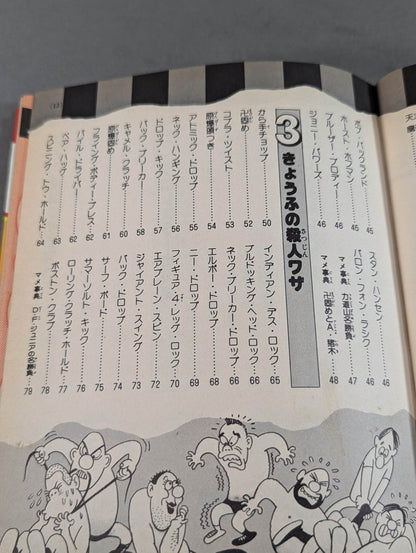 ボブ・バックランド 45
ホースト・ホフマン 45
ブルーザー・ブロディ 46
ジョニー・パワーズ 46
スタン・ハンセン 46
バロン・フォン・ラシク 46
マメ事典 力道山名勝負 47
マメ事典 卍固めとA・猪木 48
3 きょうふの殺人ワザ
さつじん
から手チョップ 50
卍固め 52
コブラ・ツイスト 53
原爆頭つき 54
アトミック・ドロップ 55
ネック・ハンギング 56
ドロップ・キック 57
バック・ブリーカー 58
キャメル・クラッチ 60
原爆固め 61
フライング・ボディー・プレス 62
パイル・ドライバー 62
ベア・ハッグ 63
スピニング・トウ・ホールド 64
インディアン・デス・ロック 65
ブルドッキング・ヘッドロック 66
ネック・ブリーカー・ドロップ 66
エルボー・ドロップ 68
ニー・ドロップ 69
フィギュア・4・レッグ・ロック 70
エアプレーン・スピン 72
ジャイアント・スイング 73
バック・ドロップ 74
サーフ・ボード 75
サマーソルト・キック 76
ローリング・クラッチ・ホールド 77
ボストン・クラブ 78
マメ事典 D・F・ジュニアの名勝負 79
(13)